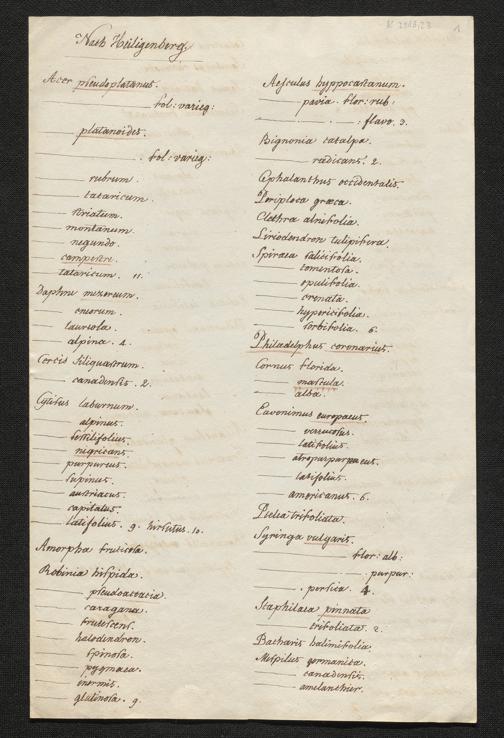 1.
Nach Heiligenberg
Acer pseudoplatanus.
fol: varieg:
platanoides.
fol: varieg:
rubrum.
tataricum.
striatum.
montanum.
negundo.
campestre.
tataricum. 11.
Daphne mezereum.
cneorum.
laureola.
alpina. 4.
Cercis siliquastrum.
canadensis. 2.
Cytisus laburnum.
alpinus.
sessilifolius.
nigricans.
purpureus.
supinus.
austriacus.
capitatus.
latifolius. 9. hirsutus. 10.
Amorpha fruticosa.
Robinia hispida.
pseudoacacia.
caragana.
frutescens.
halodendron.
spinosa.
pygmaea.
inermis.
glutinosa. 9.
Aesculus hyppocastanum.
pavia. flor: rub:
: flavo. 3.
Bignonia catalpa.
radicans. 2.
Cephalanthus occidentalis.
Periploca graeca.
Clethra alnifolia.
Liriodendron tulipifera.
Spiraea salicifolia.
tomentosa.
opulifolia.
crenata.
hypericifolia.
sorbifolia. 6.
Philadelphus coronarius.
Cornus florida.
mascula.
alba.
Evonimus europaeus.
verrucosus.
latifolius.
atropurpureus.
latifolius.
americanus. 6.
Ptelea trifoliata.
Syringa vulgaris.
flor: alb:
purpur:
persica. 4.
Staphilaea pinnata
trifoliata. 2.
Bacharis halimifolia.
Mespilus germanica.
canadensis.
amelanchier.